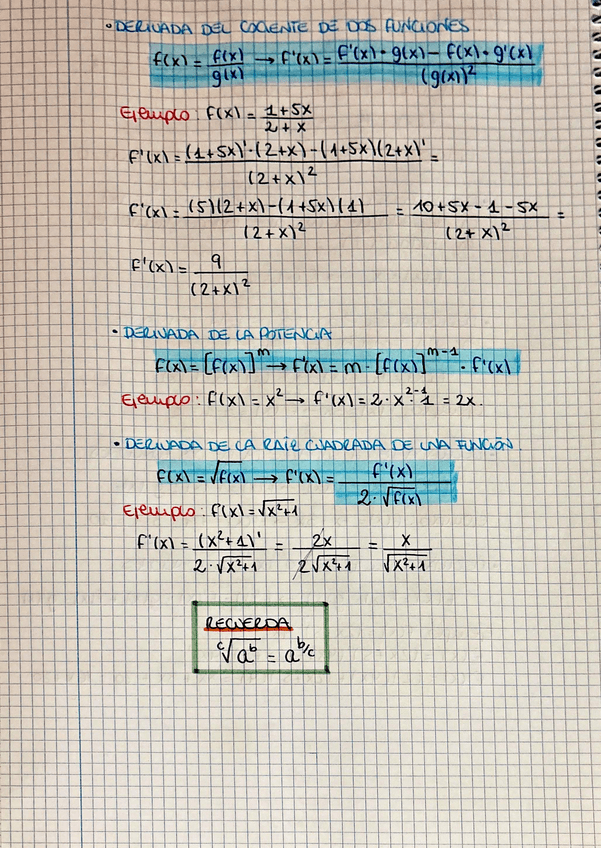 • DERIVADA DEL COCIENTE DE DOS FUNCIONES
f(x) = f(x)/g(x) → f'(x) = f'(x) · g(x) - f(x) · g'(x) / (g(x))²
Ejemplo: f(x) = 1+5x / 2+x
f'(x) = (1+5x)'·(2+x)-(1+5x)(2+x)' / (2+x)² =
f'(x) = (5)(2+x)-(1+5x)(1) / (2+x)² = 10+5x-1-5x / (2+x)² =
f'(x) = 9 / (2+x)²
• DERIVADA DE LA POTENCIA
f(x) = [f(x)]^m → f'(x) = m · [f(x)]^m-1 · f'(x)
Ejemplo: f(x) = x² → f'(x) = 2·x^2-1·1 = 2x.
• DERIVADA DE LA RAÍZ CUADRADA DE UNA FUNCIÓN.
f(x) = √f(x) → f'(x) = f'(x) / 2·√f(x)
Ejemplo: f(x) = √x²+1
f'(x) = (x²+1)' / 2·√x²+1 = 2x / 2√x²+1 = x / √x²+1
RECUERDA
ᶜ√a^b = a^b/c